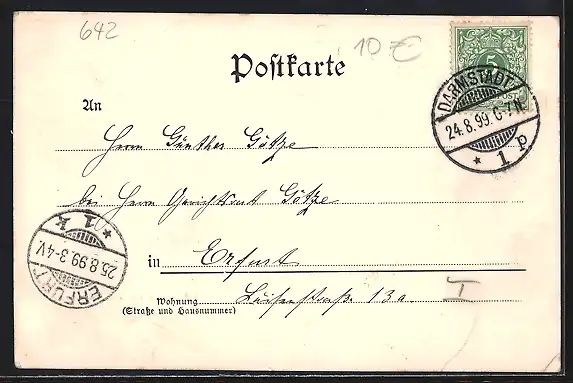 642
10 €
Postkarte
5
POST
DARMSTADT
24.8.99. 6-7 N.
* 1 P
An
Herrn Günther Götze
bei Herrn Gerichtsrat Götze
* 1 k
25.8.99 3-4V.
ERFURT
in Erfurt
Wohnung Luisenstraße 13a. I
(Straße und Hausnummer)